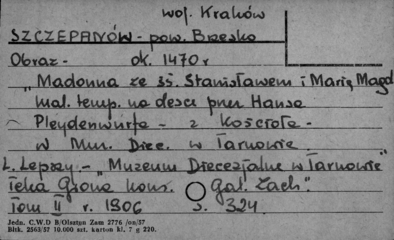 woj. Kraków
SZCZEPANÓW - pow. Brzesko
Obraz - ok. 1470 r
"Madonna ze śś. Stanisławem i Marią Magd
mal. temp. na desce przez Hansa
Pleydenwurfa - z Kościoła -
w Muz. Diec. w Tarnowie
L. Lepszy - "Muzeum Diecezjalne w Tarnowie"
Teka Grona Kons. Gal. Zach".
Tom II r. 1906 S. 324
Jedn. C.W.D B/Olsztyn Zam 2776 /on/57
Blkt. 2563/57 10.000 szt. karton kl. 7 g 220.